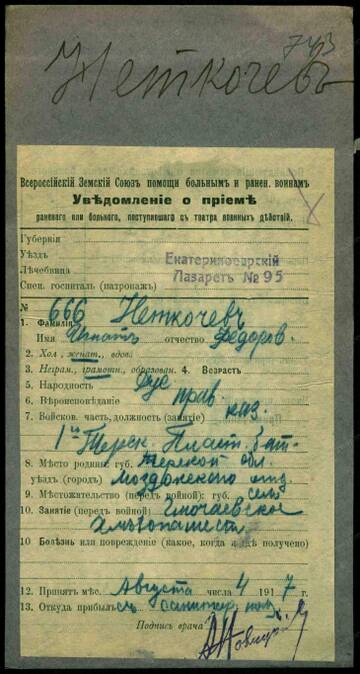 743
Неткочевъ
Всероссійскій Земскій Союзъ помощи больнымъ и ранен. воинамъ
Увѣдомленіе о пріемѣ
раненаго или больного, поступившаго съ театра военныхъ дѣйствій.
Губернія
Уѣздъ
Лѣчебница
Спец. госпиталь (патронажъ)
Екатеринодарскій
Лазаретъ № 95
№ 666 Неткочевъ
1. Фамилія
Имя Игнатъ отчество Федоров.
2. Хол., женат., вдов.
3. Неграм., грамотн., образован. 4. Возрастъ
5. Народность Рус
6. Вѣроисповѣданіе прав.
7. Войсков. часть, должность (занятіе) каз.
1й Терск. Пласт. бат.
8. Мѣсто родины: губ. Терской обл.
уѣздъ (городъ) Моздокскаго отд.
9. Мѣстожительство (передъ войной): губ. сел
10. Занятіе (передъ войной)
Хлѣбопашест.
10. Болѣзнь или поврежденіе (какое, когда и гдѣ получено)
12. Принятъ мѣс. Августа числа 4 1917 г.
13. Откуда прибылъ съ санитар.
Подпись врача